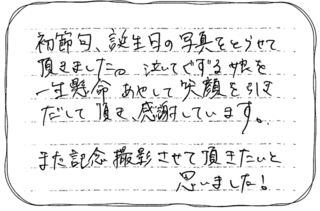 初節句、誕生日の写真をとらせて
頂きました。泣てぐずる娘を
一生懸命 あやして 笑顔を引き
だして 頂き、感謝しています。
また記念 撮影させて頂きたいと
思いました!